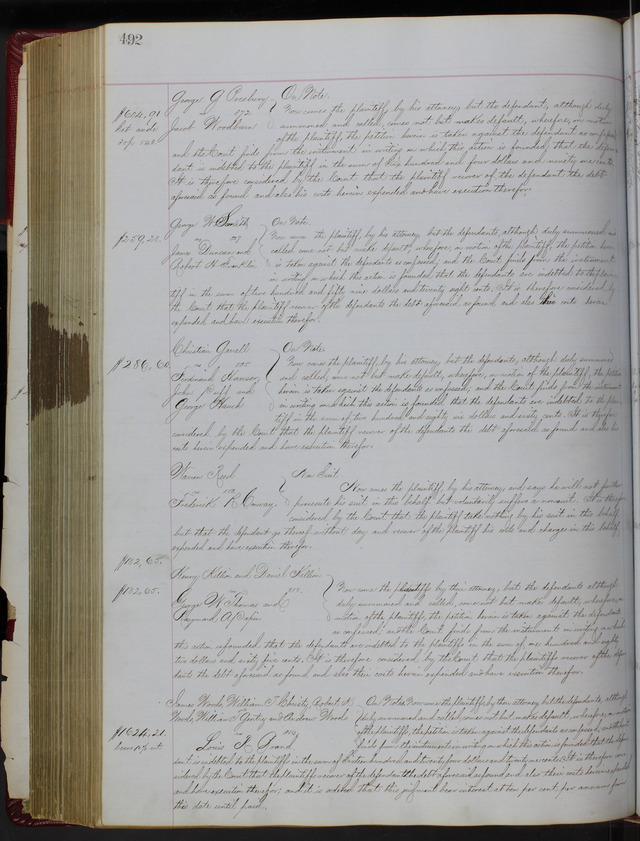 492
George G Presbury On Note.
$604.91 vs 272 Now comes the plaintiff, by his attorney, but the defendant, although duly
Jacob Woodburn summoned and called, comes not but makes default, wherefore, on motion
of the plaintiff, the petition herein is taken against the defendant as confessed,
and the Court finds from the instrument in writing on which this action is founded, that the defen
dant is indebted to the plaintiff in the sum of Six hundred and four dollars and ninety one cents.
It is therefore considered by the Court that the plaintiff recover of the defendant the debt
aforesaid as found and also his costs herein expended and have execution therefor.
George W Smith On Note.
$259,28. vs Now comes the plaintiff, by his attorney but the defendants, although duly summoned and
James Duncan and called, come not but make default, wherefore, on motion of the plaintiff, the petition herein
Robert H is taken against the defendants as confessed, and the Court finds from the instrument
in writing on which the action is founded that the defendants are indebted to the plain
tiff in the sum of two hundred and fifty nine dollars and twenty eight cents. It is therefore considered by
the Court that the plaintiff recover of the defendants the debt aforesaid as found and also his costs herein
expended and have execution therefor.
Christian On Note.
$286,60 vs Now comes the plaintiff by his attorney but the defendants, although duly summoned
Ferdinand and called, come not but make default, wherefore, on motion of the plaintiff, the petition
John and herein is taken against the defendants as confessed, and the Court finds from the instrument
George in writing on which the action is founded that the defendants are indebted to the plain
tiff in the sum of two hundred and eighty six dollars and sixty cents. It is therefore
considered by the Court that the plaintiff recover of the defendants the debt aforesaid as found and also his
costs herein expended and have execution therefor.
Warren Reed Non Suit
vs Now comes the plaintiff, by his attorney, and says he will not further
Frederick R Conway. prosecute his suit in this behalf but voluntarily suffers a nonsuit. It is therefore
considered by the Court that the plaintiff take nothing by his suit in this behalf
but that the defendant go thereof without day and recover of the plaintiff his costs and charges in this behalf
expended and have execution therefor.
$182,65.
Henry and Daniel
$182,65. vs Now come the plaintiffs by their attorney, but the defendants although
George W Thomas and duly summoned and called, come not but make default, wherefore, on
motion of the plaintiffs, the petition herein is taken against the defendants
as confessed, and the Court finds from the instrument in writing on which
this action is founded, that the defendants are indebted to the plaintiffs in the sum of one hundred and eighty
two dollars and sixty five cents. It is therefore considered by the Court that the plaintiffs recover of the defen
dants the debt aforesaid as found and also their costs herein expended and have execution therefor.
James Woods, William T. Christy, Robert K. On Note. Now come the plaintiffs, by their attorney, but the defendant, although
Woods, William S. Gentry and Andrew Woods duly summoned and called comes not but makes default, wherefore, on motion
$1624.21. vs of the plaintiffs, the petition is taken against the defendant as confessed, and the Court
Louis finds from the instrument in writing on which this action is founded that the defen
dant is indebted to the plaintiffs in the sum of Sixteen hundred and twenty four dollars and twenty one cents. It is therefore con
sidered by the Court that the plaintiffs recover of the defendant the debt aforesaid as found and also their costs herein expended
and have execution therefor; and it is ordered that this judgment bear interest at ten per cent. per annum from
this date until paid.